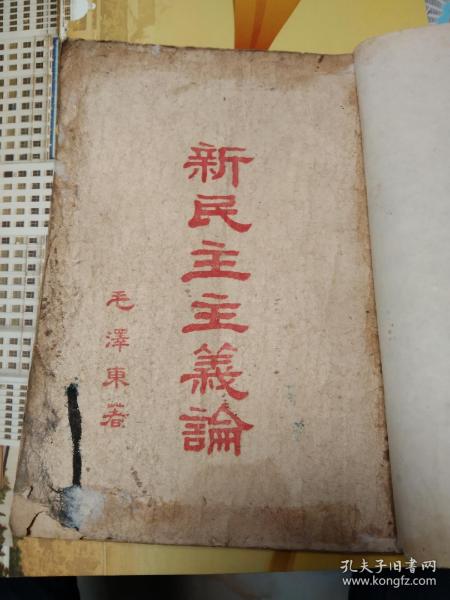 新民主主義論
毛澤東著
孔夫子旧书网
www.kongfz.com